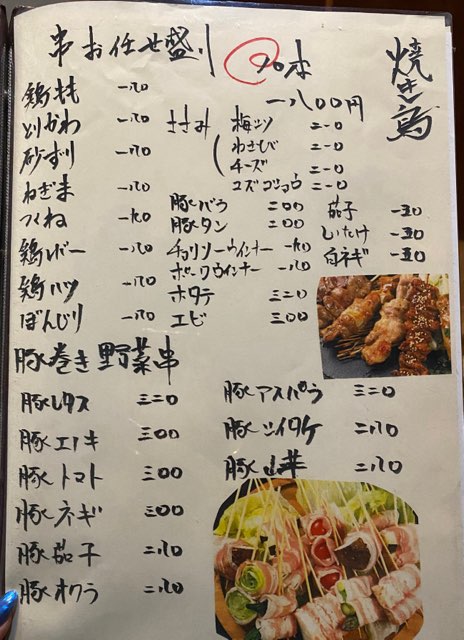 焼き鳥
串お任せ盛り 10本
一八〇〇円
鶏もも 一八〇
とりかわ 一八〇
砂ずり 一八〇
ねぎま 一八〇
つくね 一八〇
鶏レバー 一八〇
鶏ハツ 一八〇
ぼんじり 一八〇
ささみ
梅シソ 二一〇
わさび 二一〇
チーズ 二一〇
ユズゴショウ 二一〇
豚バラ 二〇〇
豚タン 二〇〇
チョリソーウインナー 一八〇
ポークウインナー 一八〇
ホタテ 三二〇
エビ 三〇〇
茄子 一五〇
しいたけ 一五〇
白ネギ 一五〇
豚巻き野菜串
豚レタス 三二〇
豚エノキ 三〇〇
豚トマト 三〇〇
豚ネギ 三〇〇
豚茄子 二八〇
豚オクラ 二八〇
豚アスパラ 三二〇
豚シイタケ 二八〇
豚山芋 二八〇